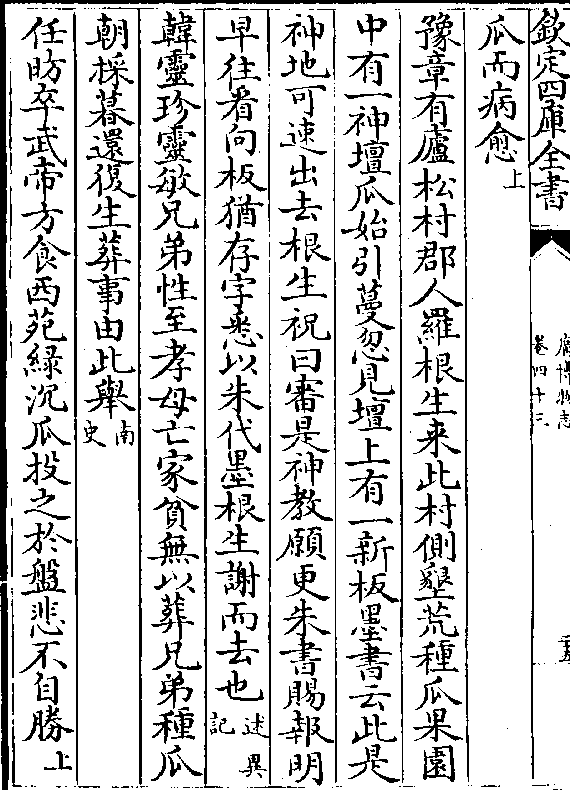 欽定四庫全書
廣博物志
卷四十三
瓜而病愈上
豫章有廬松村郡人羅根生来此村側墾荒種瓜果園
中有一神壇瓜始引蔓忽見壇上有一新板墨書云此是
神地可速出去根生祝曰審是神教願更朱書賜報明
早往看向板猶存字悉以朱代墨根生謝而去也述異記
韓靈珍靈敏兄弟性至孝母亡家貧無以葬兄弟種瓜
朝採暮還復生葬事由此舉南史
任昉卒武帝方食西苑緑沉瓜投之於盤悲不自勝上